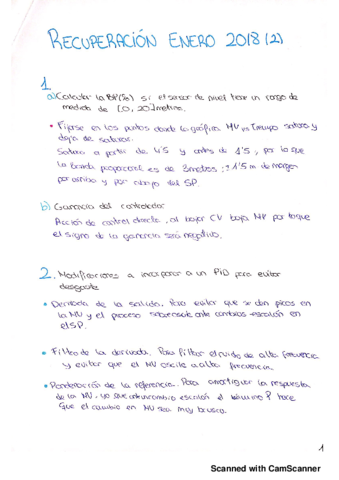 RECUPERACIÓN ENERO 2018 (2)
1
a) Calcular la BP(%) si el sensor de nivel tiene un rango de
medida de [0, 20] metros.
• Fijarse en los puntos donde la gráfica MV vs Tiempo satura y
deja de saturar.
Satura a partir de 4'5 y antes de 1'5, por lo que
la banda proporcional es de 3 metros; 1'5 m de margen
por arriba y por debajo del SP.
b) Ganancia del controlador
Acción de control directa, al bajar CV baja MV por lo que
el signo de la ganancia será negativo.
2. Modificaciones a incorporar a un PID para evitar
desgaste
• Derivada de la salida. Para evitar que se den picos en
la MV y el proceso ante cambios escalón en
el SP.
• Filtro de la derivada. Para filtrar el ruido de alta frecuencia
y evitar que el MV oscile a alta frecuencia.
• Ponderación de la referencia. Para amortiguar la respuesta
de la MV, ya que ante un cambio escalón el término P hace
que el cambio en MV sea muy brusco.
1
Scanned with CamScanner